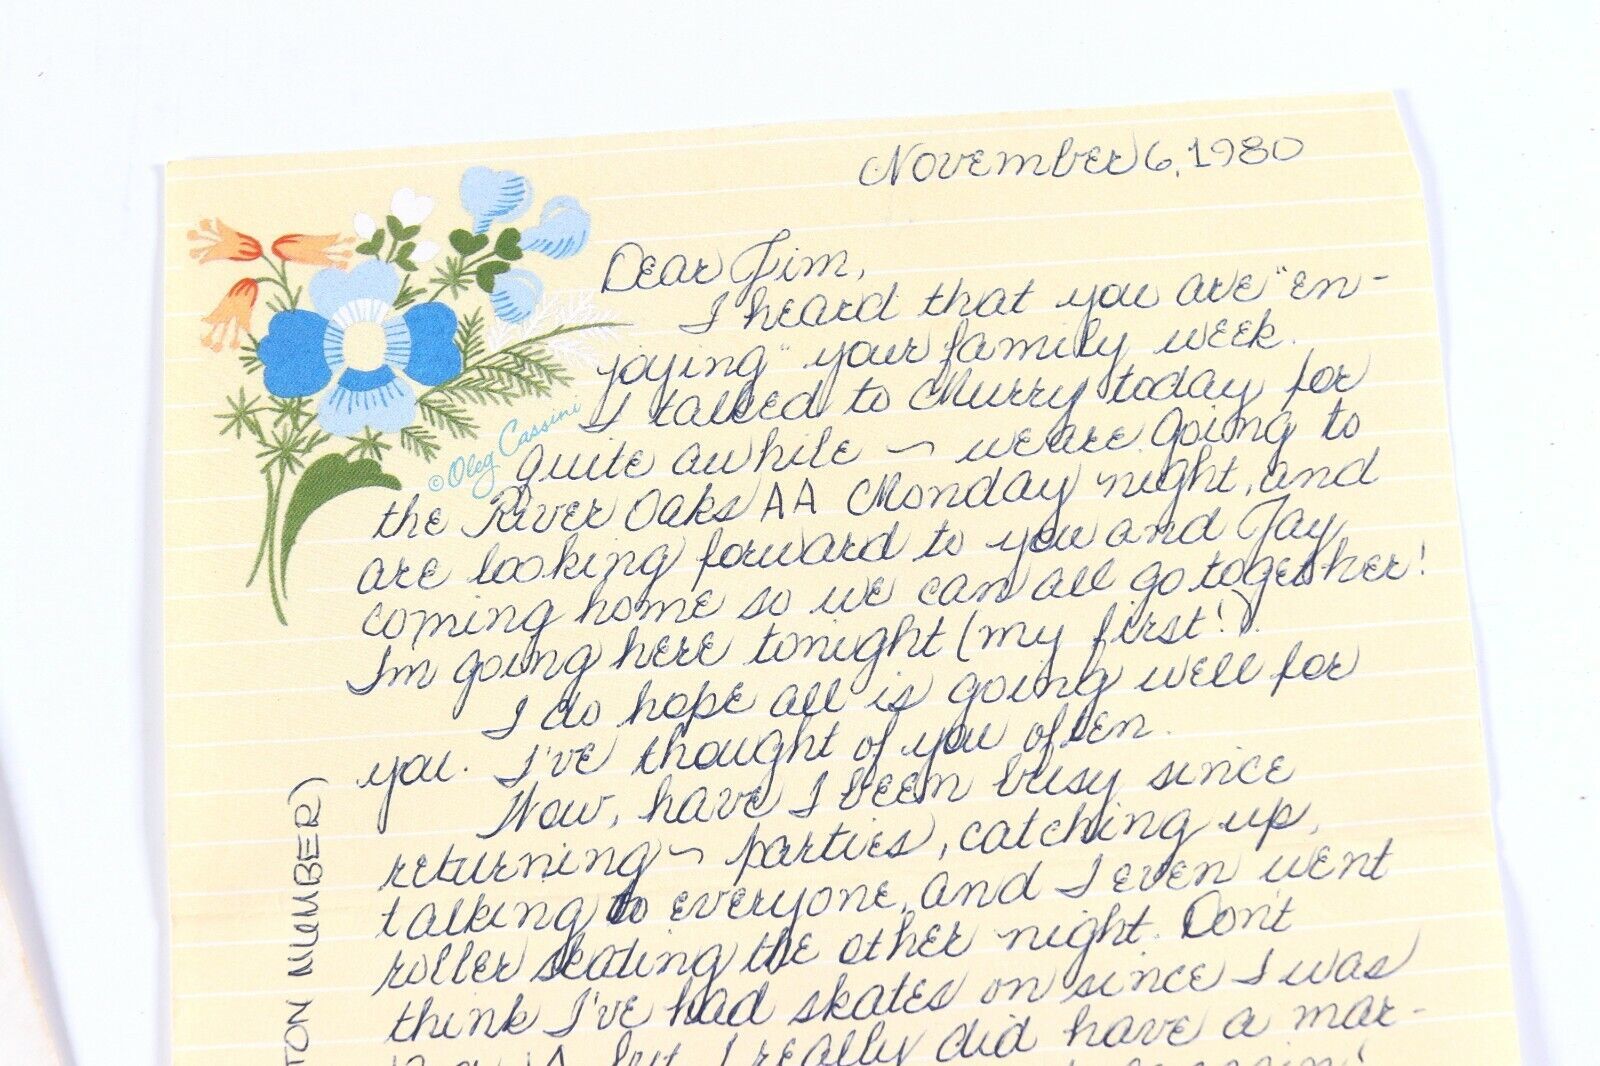 November 6, 1980
Dear Jim,
I heard that you are "en-
joying" your family week.
I talked to Murry today for
quite awhile ~ we are going to
the River Oaks AA Monday night, and
are looking forward to you and Jay
coming home so we can all go together!
I'm going here tonight (my first!).
I do hope all is going well for
you. I've thought of you often.
Wow, have I been busy since
returning ~ parties, catching up,
talking to everyone, and I even went
roller skating the other night. Don't
think I've had skates on since I was
but I really did have a mar-
© Oleg Cassini
TON NUMBER)